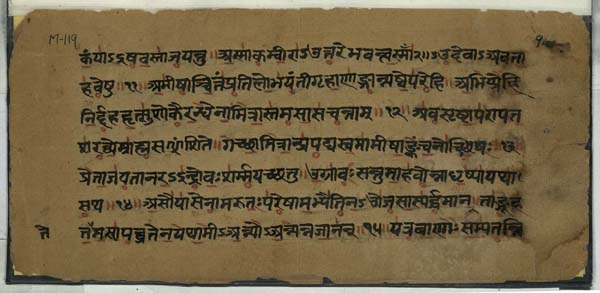 M-119 १
कंयाऽइषवस्ताजयन्तु ॥ अस्माकंवीराऽउत्तरेभवन्त्वस्माँ२॥ऽउदेवाऽअवता
हवेषु ११ अमीषाञ्चित्तंप्रतिलोभयंतीगृहाणाङ्गान्यप्वेपरेहि ॥ अभिप्रेहि
निर्दहहृत्सुशोकैरन्धेनामित्रास्तमसासचन्ताम् ॥ १२ ॥ अवसृष्टापरापत
शरव्येब्रह्मसꣳशिते ॥ गच्छामित्रान्प्रपद्यस्वमामीषाङ्कंचनोच्छिषः ॥ १३
प्रेताजयतानरऽइन्द्रोवःशर्म्मयच्छतु ॥ उग्रावःसन्तुबाहवोनाधृष्यायथा
सथ ॥ १४ ॥ असौयासेनामरुतःपरेषामभ्यैतिनऽओजसास्पर्द्धमाना ॥ ताङ्गूह
त तमसापव्रतेनयथामीऽअन्योऽअन्यन्नजानन् ॥ १५ ॥ यत्रबाणाःसम्पतन्ति